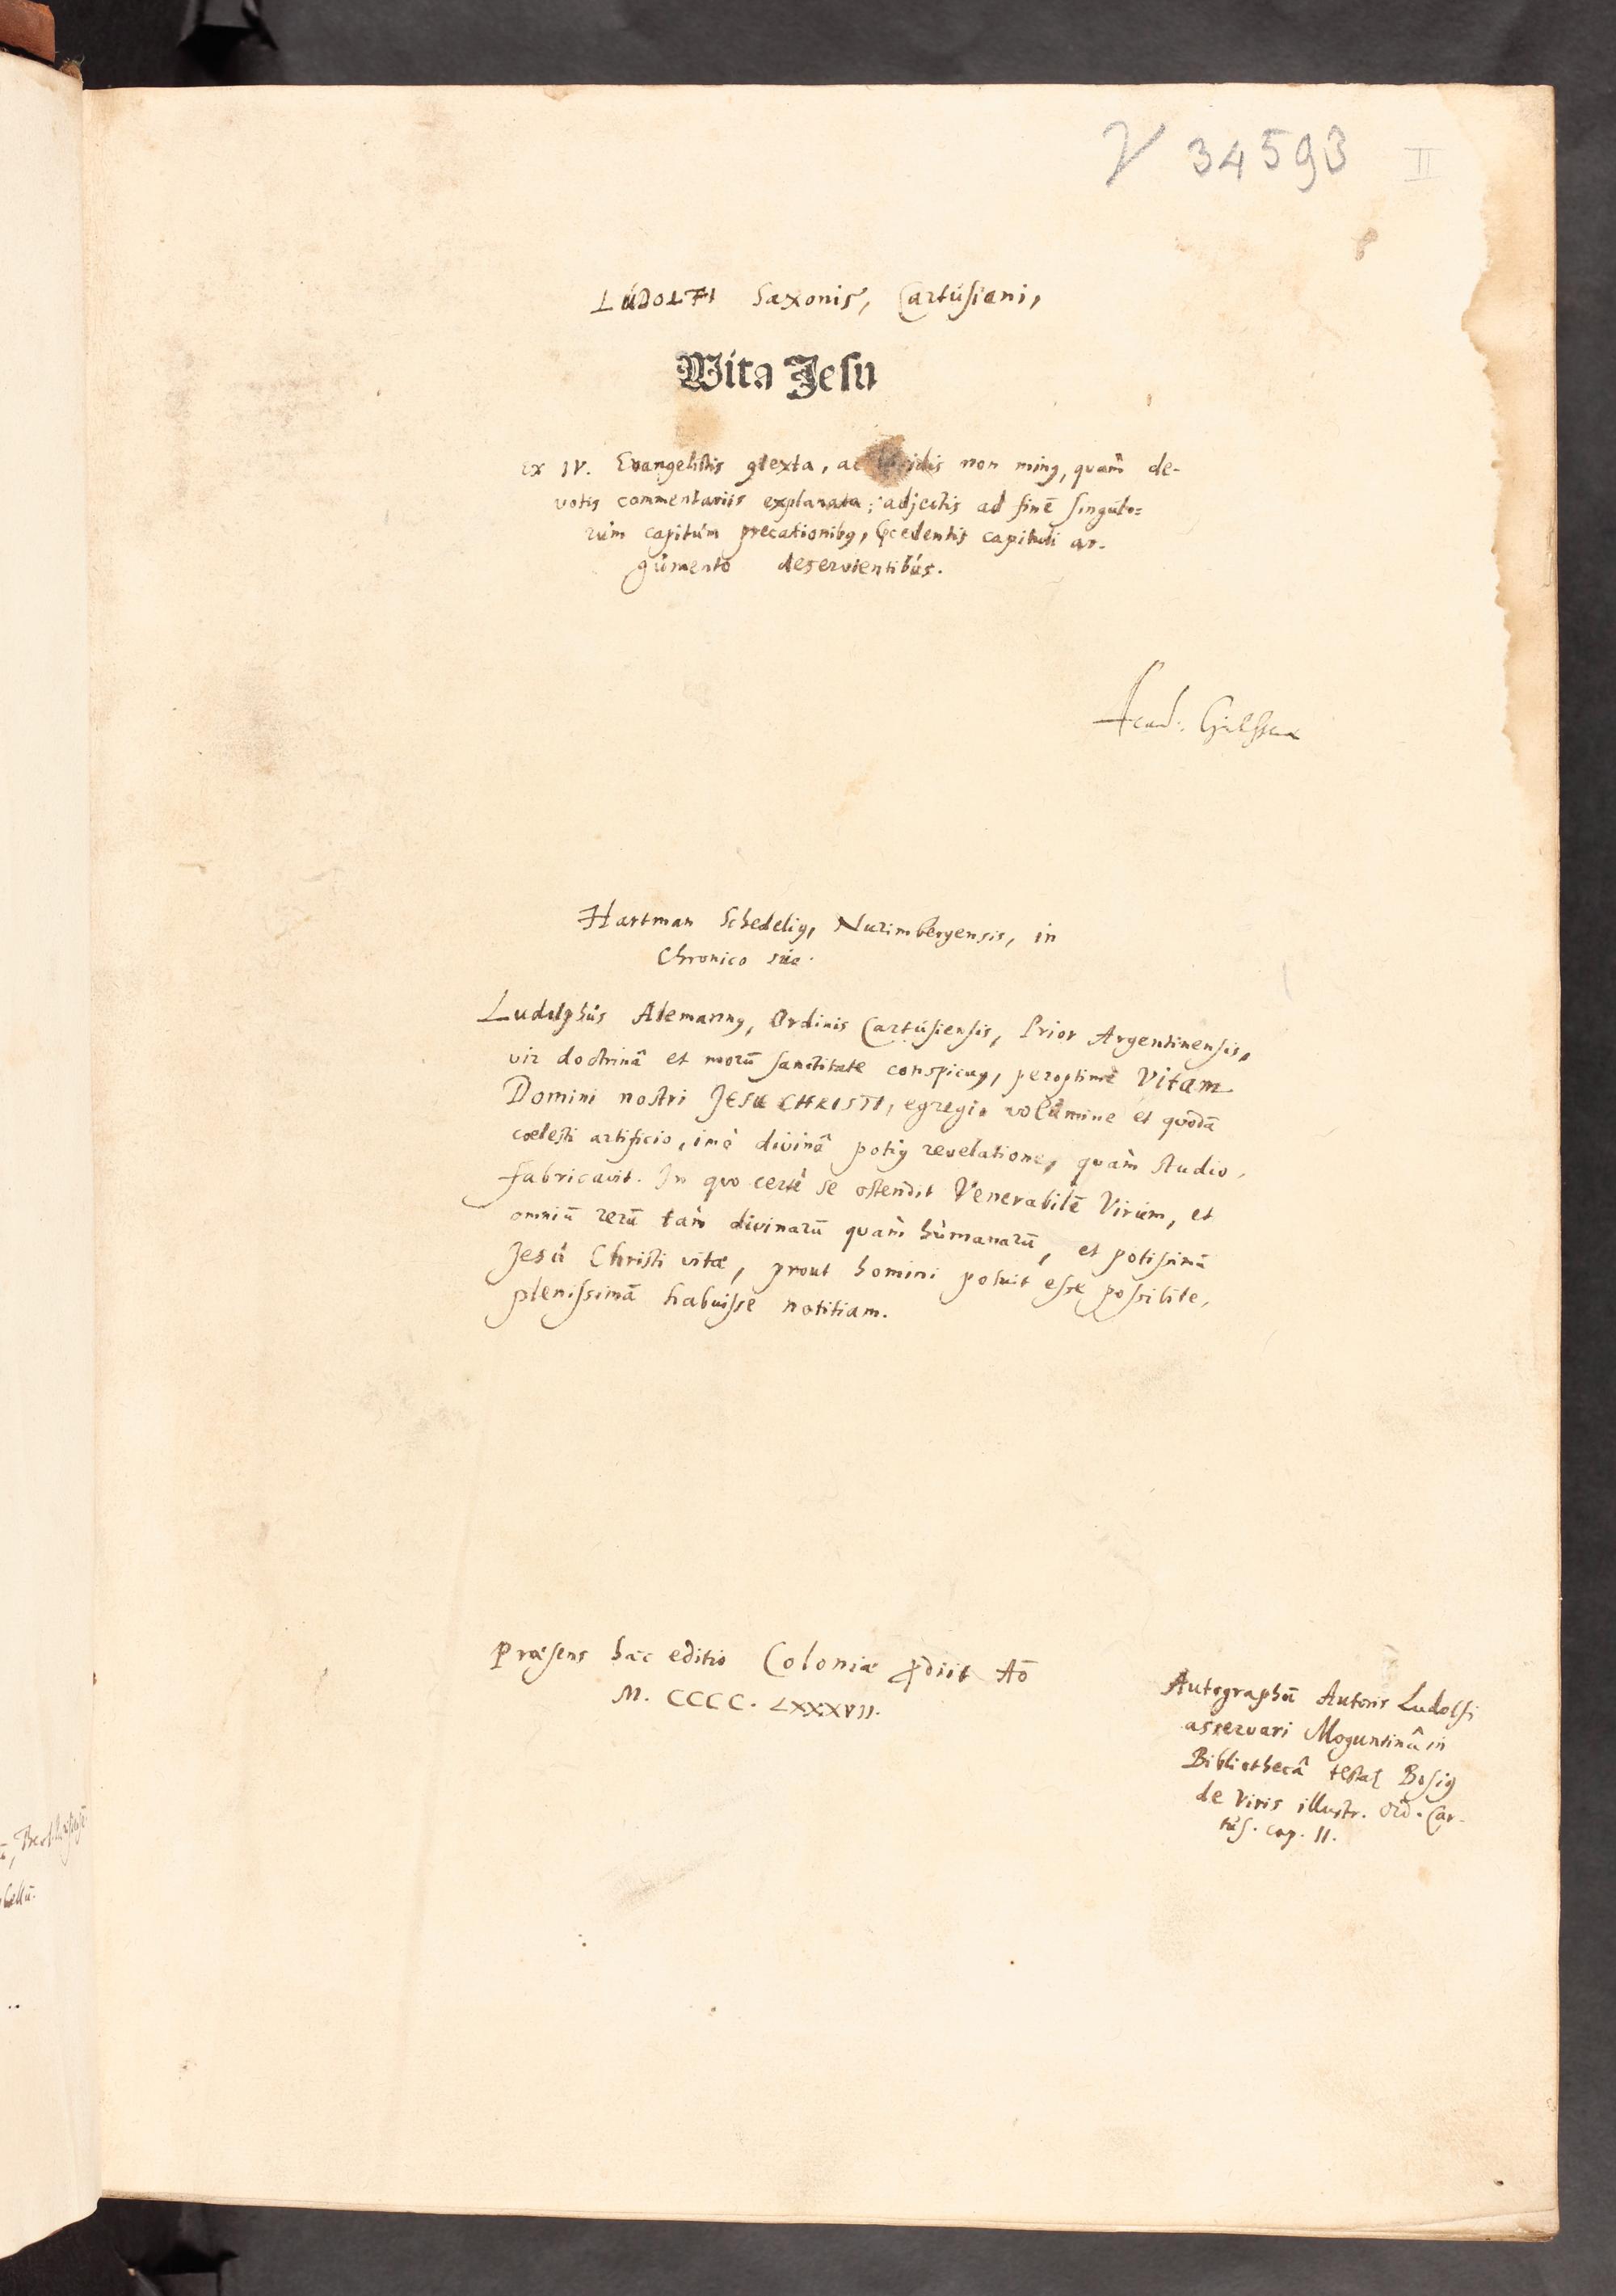 V 34593 II
LúDOLFI Saxonis, Cartúsiani,
Vita Jesu
ex IV. Evangelistis ꝯtexta, ac non minꝰ, quàm de-
votis commentariis explanata; adjectis ad finē singúlo=
rúm capitúm precationibꝰ, capituli ar-
gúmento deservientibús.
Acad.
Hartman Schedeliꝰ, Nurimbergensis, in
Chronico súo.
Ludolphús Alemannꝰ, Ordinis Cartúsiensis, Prior Argentinensis,
vir doctrinâ et morū sanctitate conspicuꝰ, peroptimè Vitam
Domini nostri JESU CHRISTI, egregio volúmine et quodā
cœlesti artificio, imò divinâ potiꝰ revelatione, quàm studio,
fabricavit. In quo certè se ostendit Venerabilē Virum, et
omniū rerū tàm divinarū quàm húmanarū, et potissimā
Jesú Christi vitæ, prout homini potuit esse possibile,
plenissimā habuisse notitiam.
Præsens hæc editio Coloniæ ꝓdiit Aō
M. CCCC. LXXXVII.
Autographū Autoris Ludolfi
asservari Moguntinâ in
Bibliothecâ Bosiꝰ
de Viris illustr. Ord. Car-
tús. cap. 11.